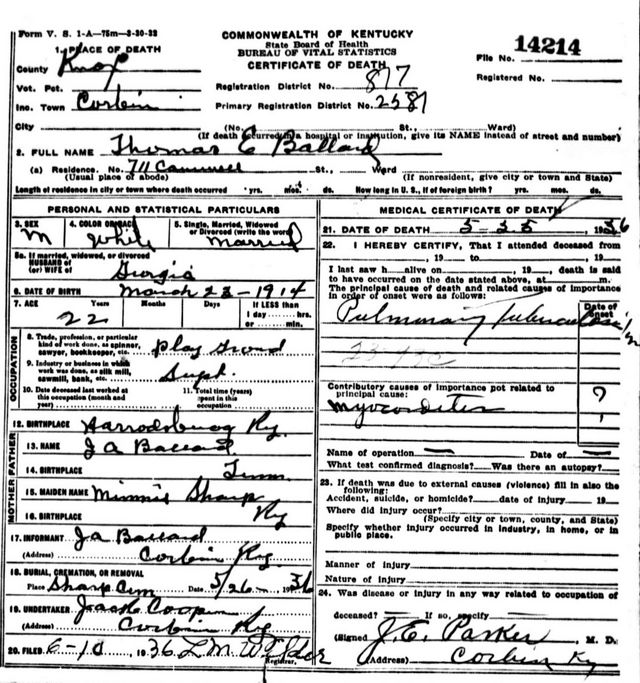 Form V. S. 1-A—75m—3-30-32
COMMONWEALTH OF KENTUCKY
State Board of Health
BUREAU OF VITAL STATISTICS
CERTIFICATE OF DEATH
14214
File No.
Registered No.
1. PLACE OF DEATH
County Knox
Vot. Pct.
Registration District No. 877
Inc. Town Corbin
Primary Registration District No. 2587
City (No. St., Ward)
(If death occurred in a hospital or institution, give its NAME instead of street and number)
2. FULL NAME Thomas E Ballard
(a) Residence. No. 711 St., Ward
(Usual place of abode) (If nonresident, give city or town and State)
Length of residence in city or town where death occurred yrs. mos. ds. How long in U. S., if of foreign birth? yrs. mos. ds.
PERSONAL AND STATISTICAL PARTICULARS
3. SEX
M
4. COLOR OR RACE
White
5. Single, Married, Widowed
or Divorced (write the word)
Married
5a. If married, widowed, or divorced
HUSBAND of
(or) WIFE of Georgia
6. DATE OF BIRTH March 23-1914
7. AGE Years Months Days If LESS than
1 day hrs.
or min.
22
OCCUPATION
8. Trade, profession, or particular
kind of work done, as spinner,
sawyer, bookkeeper, etc. Play Ground
9. Industry or business in which
work was done, as silk mill,
sawmill, bank, etc. Supt.
10. Date deceased last worked at
this occupation (month and
year)
11. Total time (years)
spent in this
occupation
12. BIRTHPLACE Harrodsburg Ky.
FATHER
13. NAME J A Ballard
14. BIRTHPLACE Tenn.
MOTHER
15. MAIDEN NAME Minnie Sharp
16. BIRTHPLACE Ky
17. INFORMANT J A Ballard
(Address) Corbin Ky
18. BURIAL, CREMATION, OR REMOVAL
Place Sharp Cem Date 5/26 1936
19. UNDERTAKER Coop
(Address) Corbin Ky
20. FILED 6-10 1936 L.M.
Registrar.
MEDICAL CERTIFICATE OF DEATH
21. DATE OF DEATH 5-25 1936
22. I HEREBY CERTIFY, That I attended deceased from
, 19 to , 19
I last saw h alive on , 19 , death is said
to have occurred on the date stated above, at m.
The principal cause of death and related causes of importance
in order of onset were as follows:
Date of
onset
Pulmonary Tuberculosis
Contributory causes of importance not related to
principal cause:
Myocarditis ?
Name of operation — Date of —
What test confirmed diagnosis? Was there an autopsy?
23. If death was due to external causes (violence) fill in also the
following:
Accident, suicide, or homicide? date of injury 19
Where did injury occur?
(Specify city or town, county, and State)
Specify whether injury occurred in industry, in home, or in
public place.
Manner of injury
Nature of injury
24. Was disease or injury in any way related to occupation of
deceased? — If so, specify
(Signed J. E. Parker M. D.
(Address) Corbin Ky